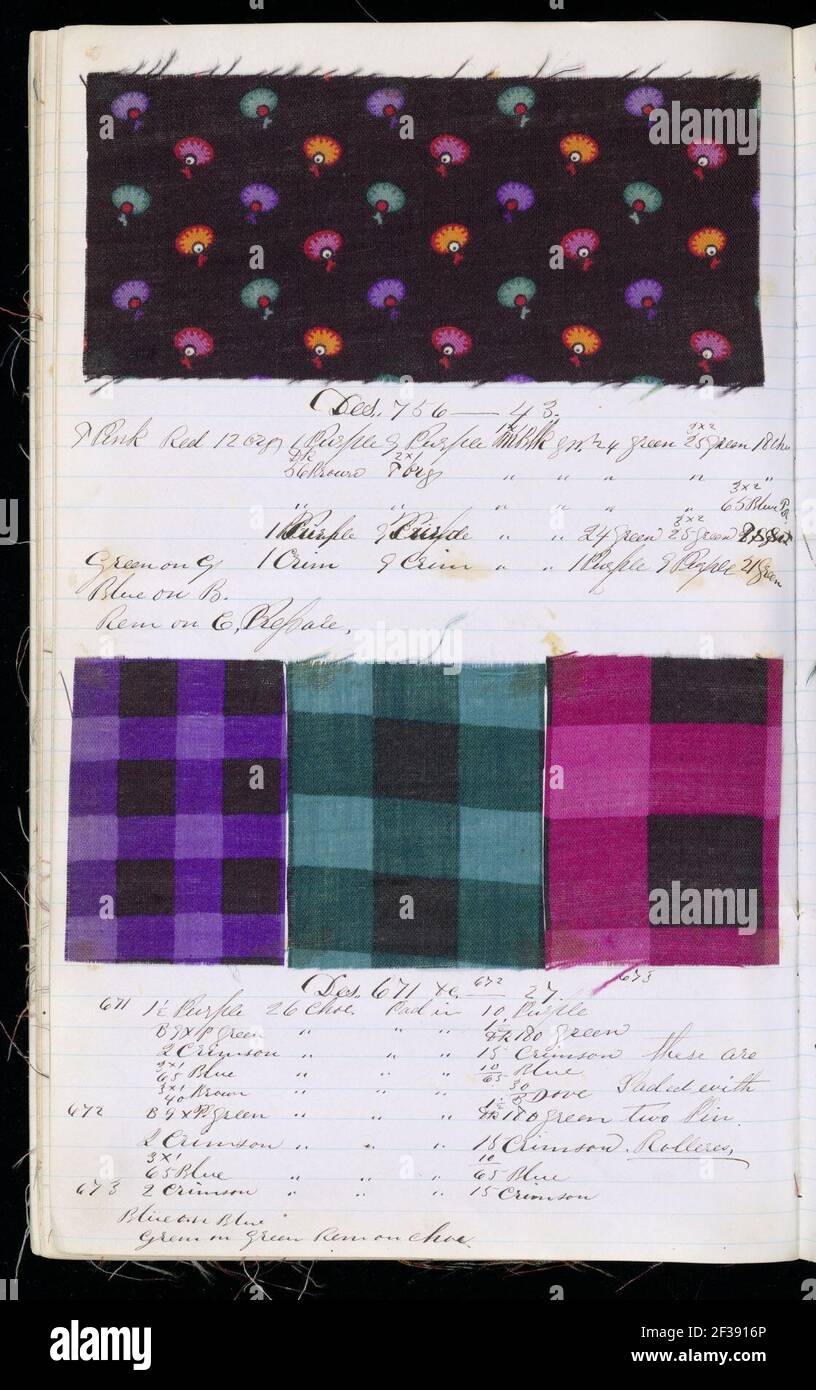 Des. 756 — 43.
Pink Red 12 Org 1 Purple 9 Purple Blk 24 Green 25 Green 18 Cho
3x2
DK 2x1
56 Brown 7 Org " " " " " "
3x2
" " " " " " 65 Blue
3x2
1 Purple 9 Purple " " 24 Green 25 Green
Green on G 1 Crim 9 Crim " " 1 Purple 9 Purple 21 Green
Blue on B.
Rem on C, Prepare.
Des. 671 &c — 672 27. 673
671 1½ Purple 26 Choc. Pad in 10. Purple
B 9 x P. Green " " " DK 180 Green
2 Crimson " " " 15 Crimson these are
3x1 10
65 Blue " " " 65 Blue
3x1 30
40 Brown " " " Dove Paded with
672 B 9 x P. Green " " " DK 180 Green two Pin
2 Crimson " " " 15 Crimson. Rollers,
3x1 10
65 Blue " " " 65 Blue
673 2 Crimson " " " 15 Crimson
Blue on Blue
Green on Green Rem on Choc.
alamy
alamy
Image ID: 2F3916P
www.alamy.com